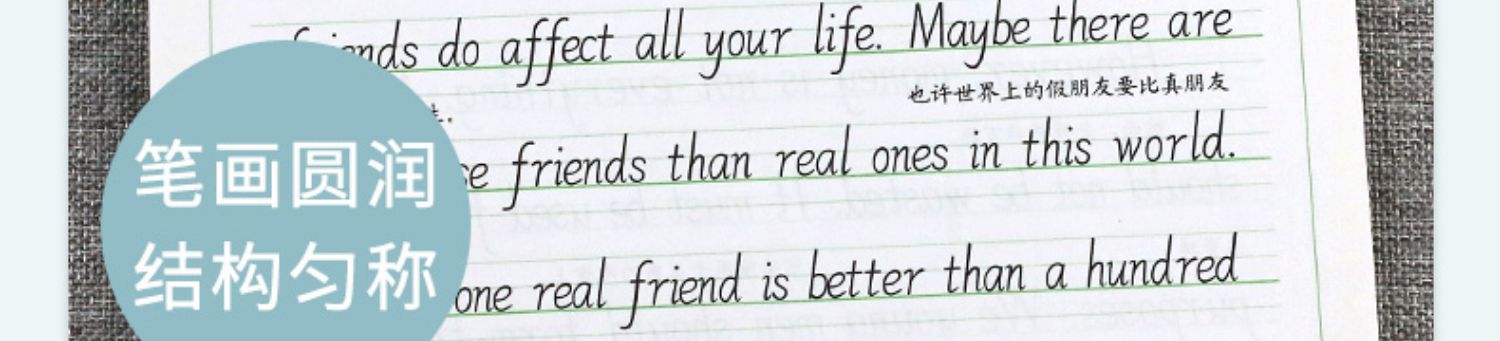 friends do affect all your life. Maybe there are
也许世界上的假朋友要比真朋友
friends than real ones in this world.
one real friend is better than a hundred
笔画圆润
结构匀称